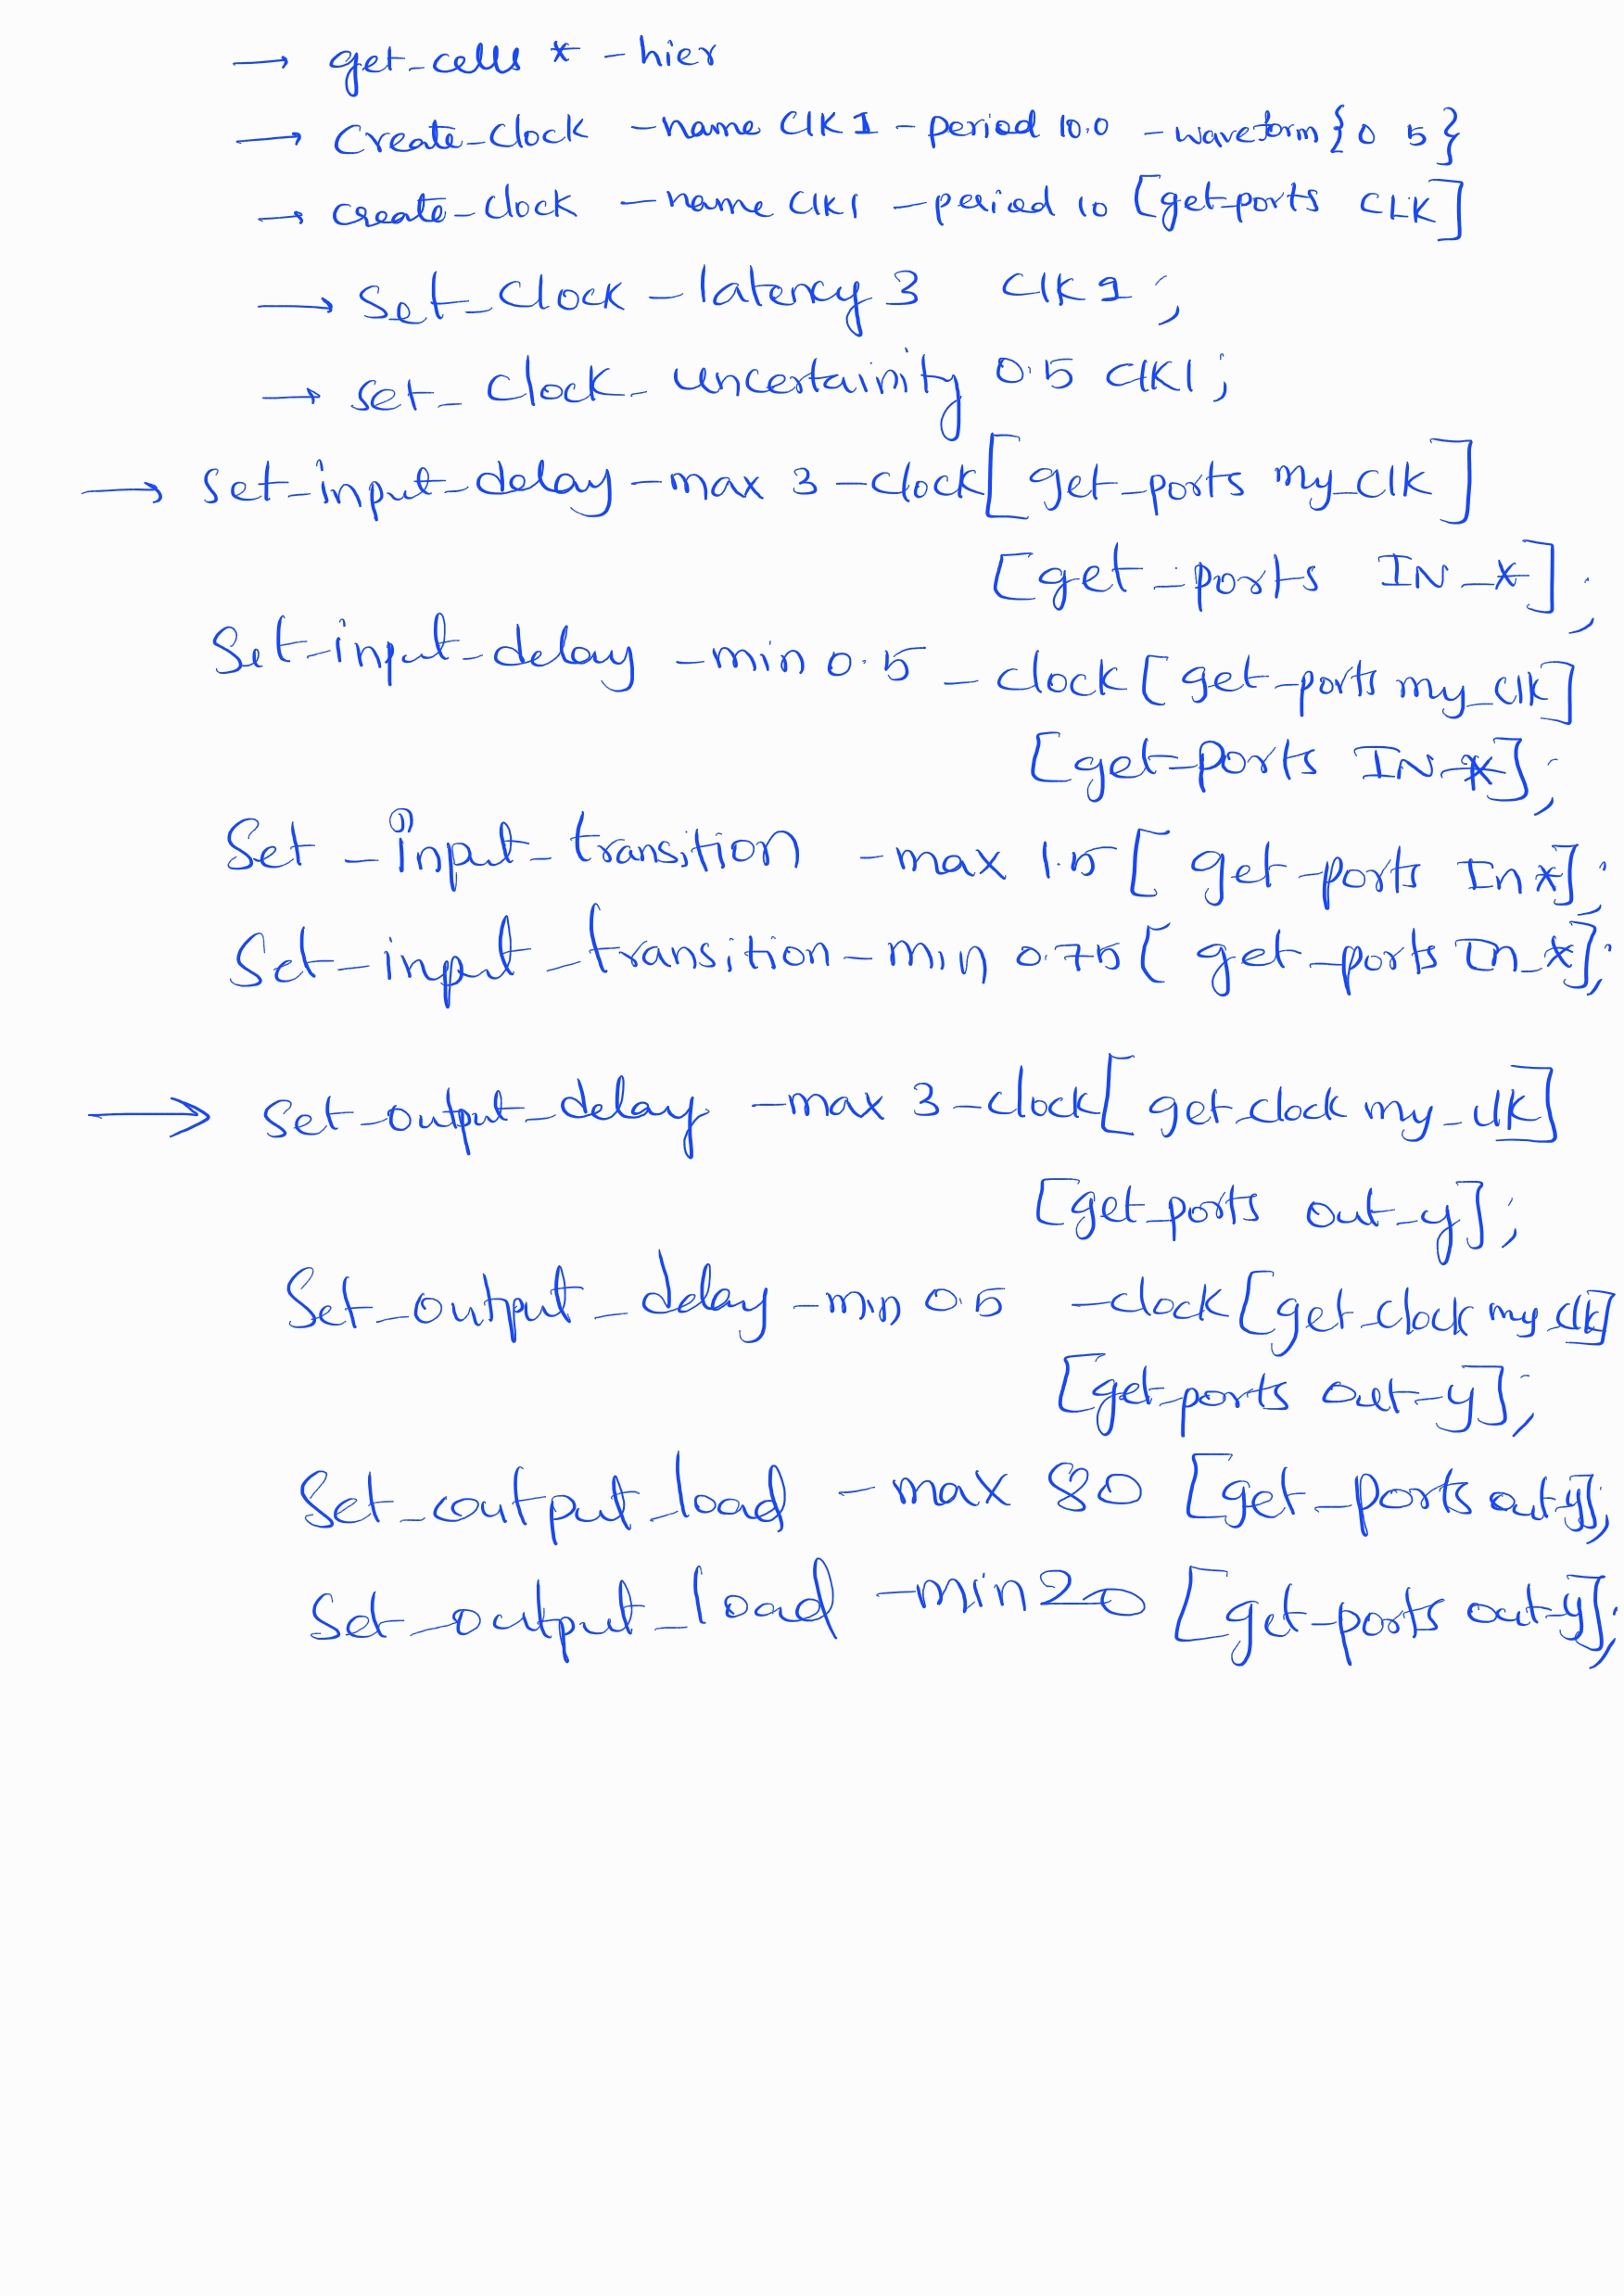 → get_cells * -hier
→ Create_Clock -name ClK1 -period 10.0 -waveform { 0 5 }
→ create_clock -name ClK1 -period 10 [get_ports CLK]
→ Set_Clock_latency 3 ClK1 ;
→ set_ Clock_ uncertainity 0.5 ClK1 ;
→ set_input_delay -max 3 -clock [ get_ports my_Clk ]
[get_ports IN_*] ;
Set_input_delay -min 0.5 -clock [ get_ports my_Clk]
[get_ports IN_*] ;
Set _input_ transition -max 1.5 [ get_ports In*] ;
Set_input_transition -min 0.75 [ get_ports In_*];
→ set_output_delay -max 3 -clock [ get_clock my_clk]
[get_ports out_y] ;
Set_output_delay -min 0.5 -clock [get_clock my_clk]
[get_ports out_y];
Set_output_load -max 80 [get_ports out_y];
Set_output_load -min 20 [get_ports out_y];